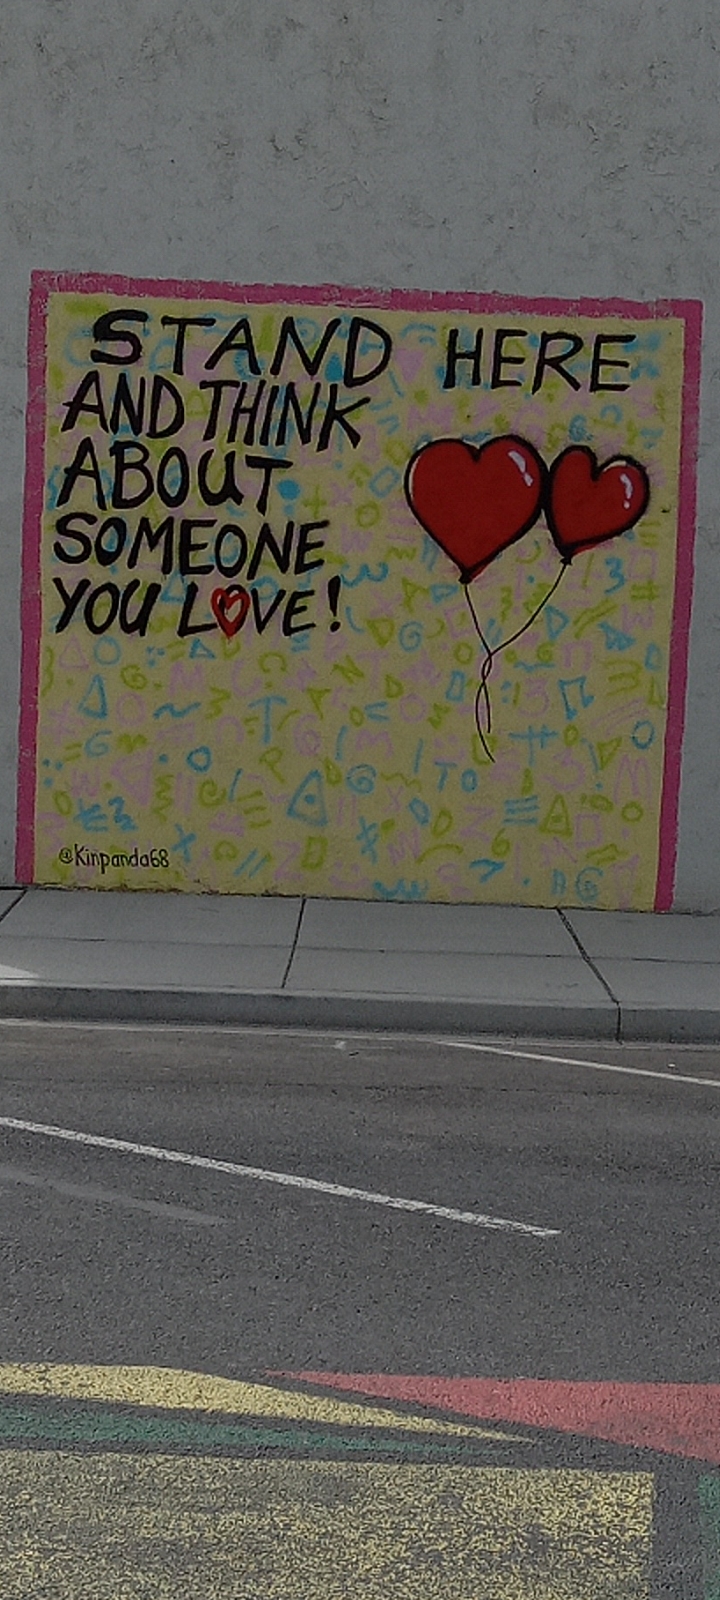 STAND HERE
AND THINK
ABOUT
SOMEONE
YOU LOVE!
@Kinpanda68